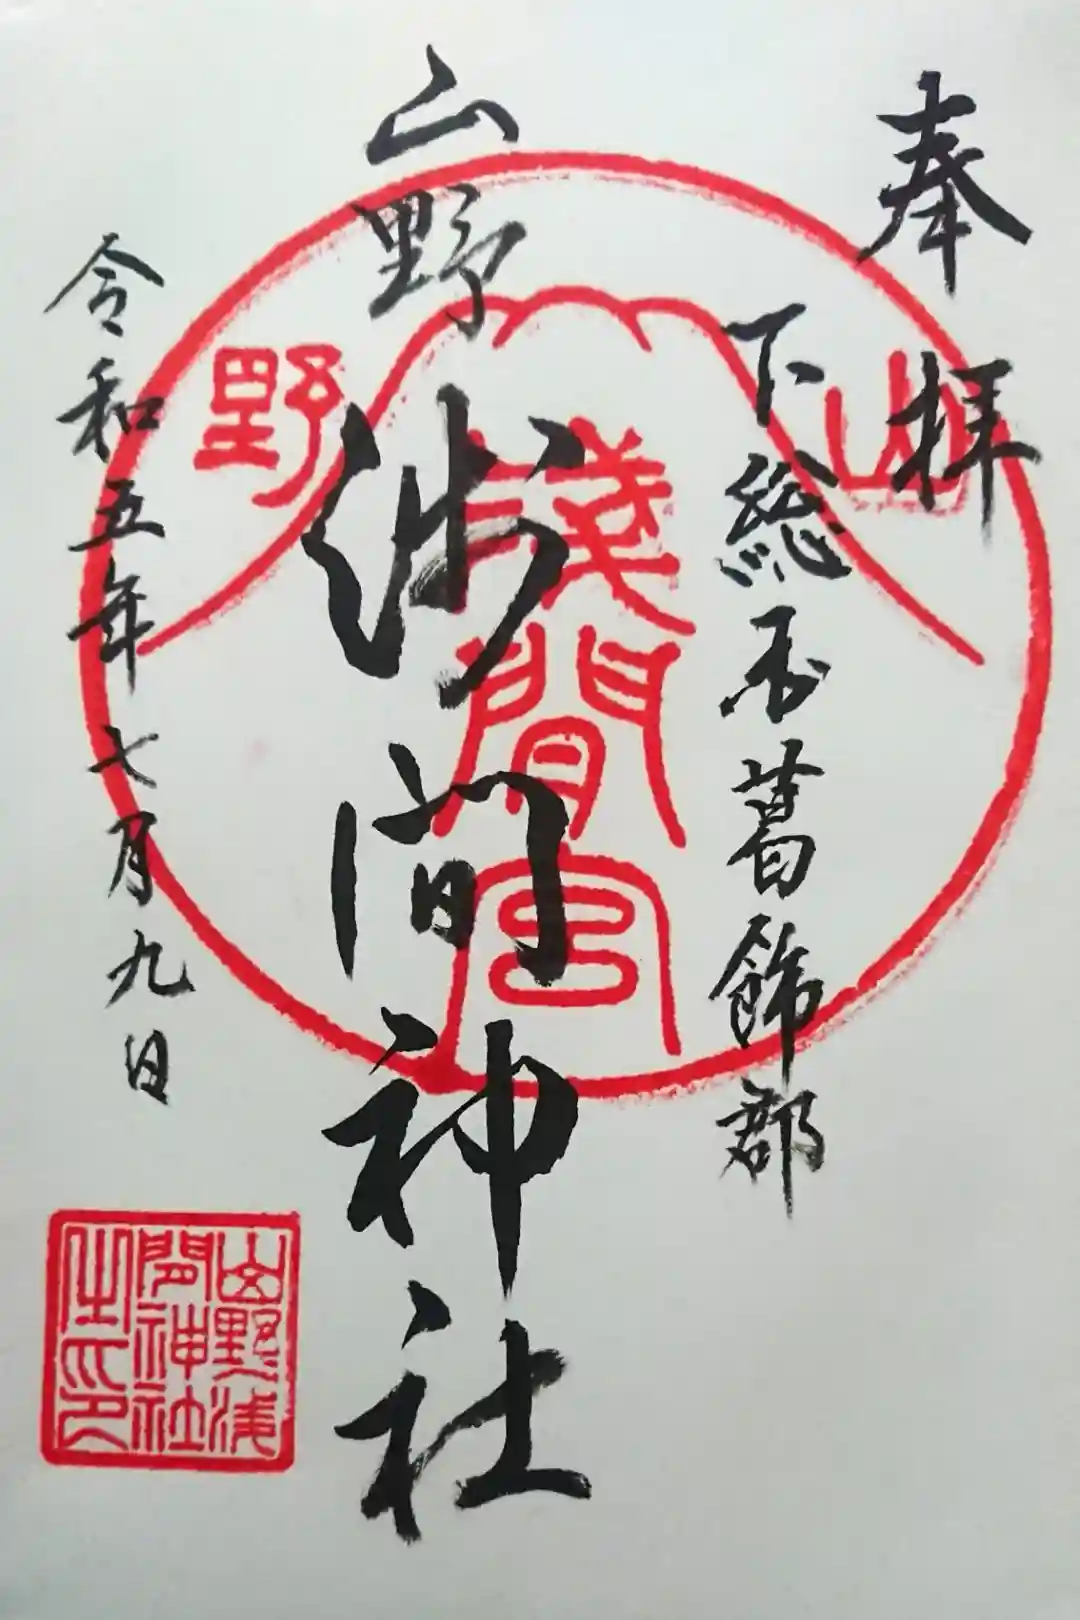 奉拝
下総国葛飾郡
山野浅間神社
令和五年七月九日
山野
浅間宮
山野浅
間神社
之印